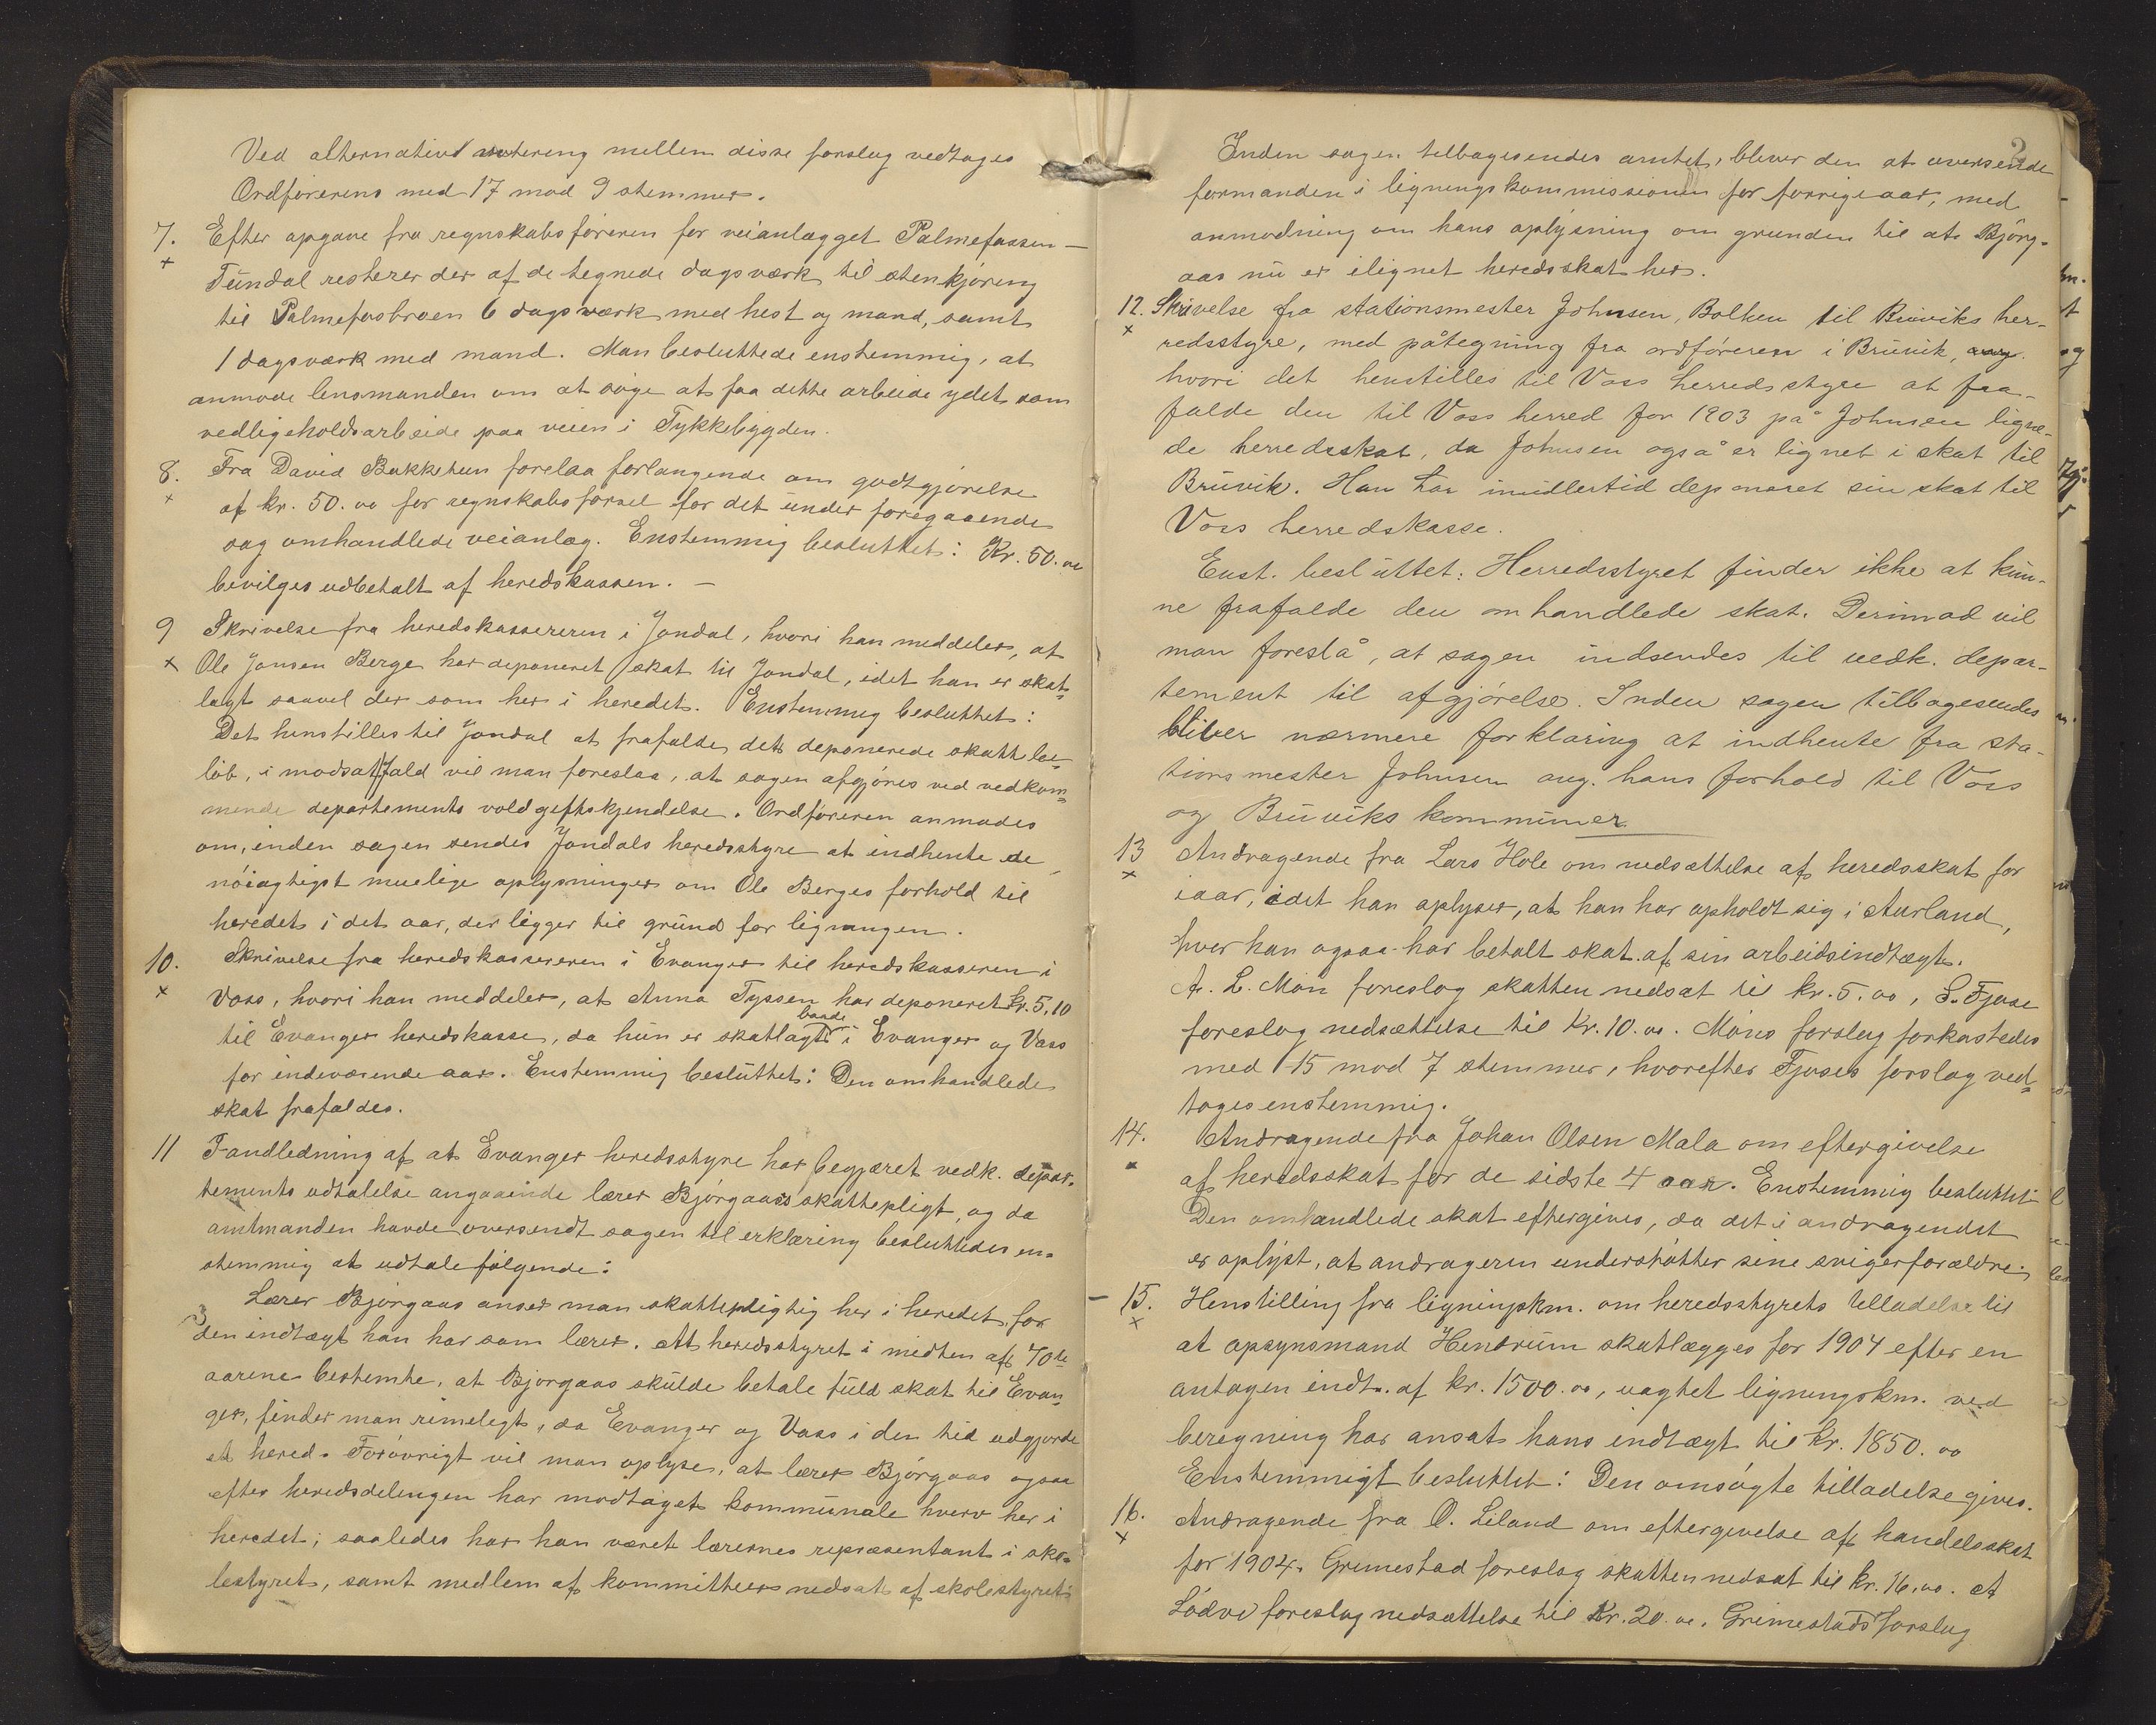 Ved alternativ votering mellem disse forslag vedtages
Ordförerens med 17 mod 9 stemmer.
7. Efter opgave fra regnskabsföreren for veianlægget Palmefossen—
+ Tundal resterer der af de tegnede dagsværk til stenkjöring
til Palmefosbroen 6 dagsværk med hest og mand, samt
1 dagsværk med mand. Man besluttede enstemmig, at
anmode lensmanden om at söge at faa dette arbeide ydet som
vedligeholdsarbeide paa veien i Tykkebygden.
8. Fra David Bakketun forelaa forlangende om godtgjörelse
+ af kr. 50.00 for regnskabsförsel for det under foregaaende
sag omhandlede veianlæg. Enstemmig besluttet: Kr. 50.00
bevilges udbetalt af heredskassen. —
9 Skrivelse fra heredskassereren i Jondal, hvori han meddeler, at
x Ole Jonsen Berge har deponeret skat til Jondal, idet han er skat-
lagt saavel der som her i heredet. Enstemmig besluttet:
Det henstilles til Jondal at frafalde det deponerede skattebe-
löb, i modsat fald vil man foreslaa, at sagen afgjöres ved vedkom-
mende departements voldgiftskjendelse. Ordföreren anmodes
om, inden sagen sendes Jondals heredsstyre at indhente de
nöiagtigst muelige oplysninger om Ole Berges forhold til
heredet i det aar, der ligger til grund for ligningen.
10. Skrivelse fra heredskassereren i Evanger til heredskasseren i
x Voss, hvori han meddeler, at Anna Tyssen har deponeret kr. 5,10
til Evanger heredskasse, da hun er skatlagt baade i Evanger og Voss
for indeværende aar. Enstemmig besluttet: Den omhandlede
skat frafaldes.
11 I andledning af at Evanger heredsstyre har begjæret vedk. depar-
tements udtalelse angaaende lærer Björgaas's skattepligt, og da
amtmanden havde oversendt sagen til erklæring besluttedes en-
stemmig at udtale fölgende:
Lærer Björgaas anser man skattepligtig her i heredet for
den indtægt han har som lærer. At heredsstyret i midten af 70de
aarene bestemte, at Björgaas skulde betale fuld skat til Evan-
ger, finder man rimeligt, da Evanger og Voss i den tid udgjorde
et hered. Forövrigt vil man oplyse, at lærer Björgaas ogsaa
efter heredsdelingen har modtaget kommunale hverv her i
heredet; saaledes har han været lærernes repræsentant i sko-
lestyret, samt medlem af kommitteer nedsat af skolestyret.
Inden sagen tilbagesendes amtet, bliver den at oversende
formanden i ligningskommissionen for forrige aar, med
anmodning om hans oplysning om grunden til at Björg-
aas nu er ilignet heredsskat her.
12. Skrivelse fra stationsmester Johnsen, Bolken til Bruviks her-
x redsstyre, med påtegning fra ordföreren i Bruvik,
hvori det henstilles til Voss herredsstyre at fra-
falde den til Voss herred for 1903 på Johnsen ligne-
de herredsskat, da Johnsen også er lignet i skat til
Bruvik. Han har imidlertid deponeret sin skat til
Voss herredskasse.
Enst. besluttet: Herredsstyret finder ikke at kun-
ne frafalde den omhandlede skat. Derimod vil
man foreslå, at sagen indsendes til vedk. depar-
tement til afgjörelse. Inden sagen tilbagesendes
bliver nærmere forklaring at indhente fra sta-
tionsmester Johnsen ang. hans forhold til Voss
og Bruviks kommuner.
13 Andragende fra Lars Hole om nedsættelse af heredsskat for
x iaar, idet han oplyser, at han har opholdt sig i Aurland,
hvor han ogsaa har betalt skat af sin arbeidsindtægt.
A. L. Mön foreslog skatten nedsat til kr. 5.00, S. Fjose
foreslog nedsættelse til Kr. 10.00. Möns forslag forkastedes
med 15 mod 7 stemmer, hvorefter Fjoses forslag ved-
toges enstemmig.
14. Andragende fra Johan Olsen Mala om eftergivelse
af heredsskat for de sidste 4 aar. Enstemmig besluttet
Den omhandlede skat eftergives, da det i andragendet
er oplyst, at andrageren understötter sine svigerforældre.
15. Henstilling fra ligningskm. om heredsstyrets tilladelse til
x at opsynsmand Hendrum skatlægges for 1904 efter en
antagen indt. af kr. 1500.00, uagtet ligningskm. ved
beregning har ansat hans indtægt til kr. 1850.00
Enstemmigt besluttet: Den omsögte tilladelse gives.
16. Andragende fra O. Liland om eftergivelse af handelsskat
x for 1904. Grimestad foreslog skatten nedsat til kr. 16.00. At
Lödve foreslog nedsættelse til kr. 20.00. Grimestads forslag